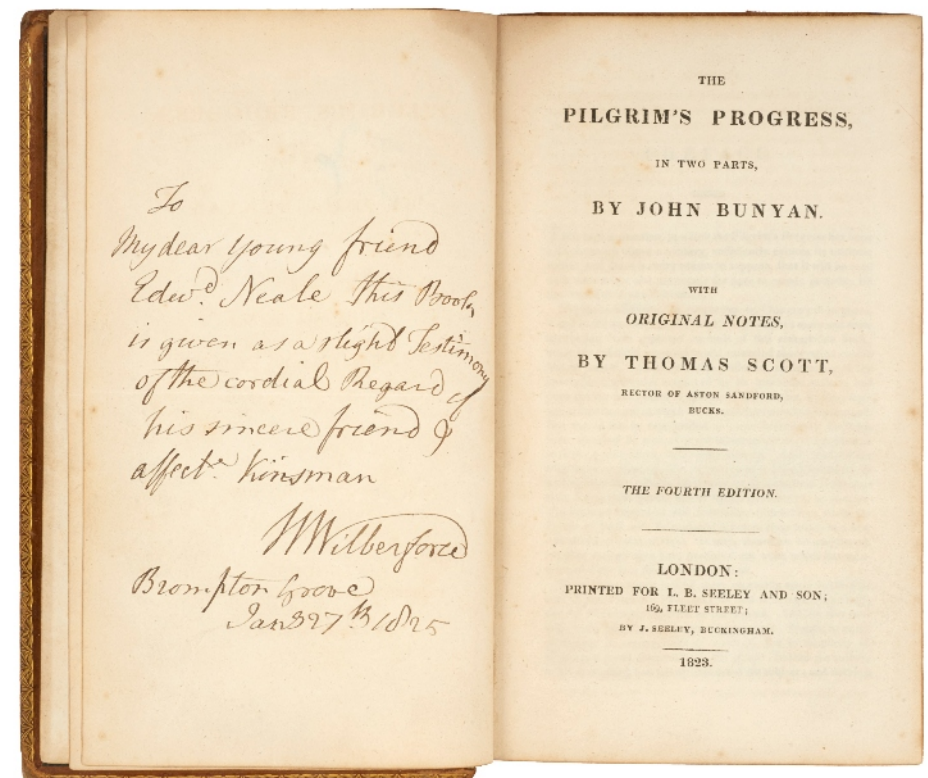 To
My dear young friend
Edwd. Neale this Book
is given as a slight Testimony
of the cordial Regard of
his sincere friend &
affecte. Kinsman
W Wilberforce
Brompton Grove
Jany 27th 1825
THE
PILGRIM'S PROGRESS,
IN TWO PARTS,
BY JOHN BUNYAN.
WITH
ORIGINAL NOTES,
BY THOMAS SCOTT,
RECTOR OF ASTON SANDFORD,
BUCKS.
THE FOURTH EDITION.
LONDON:
PRINTED FOR L. B. SEELEY AND SON;
169, FLEET STREET;
BY J. SEELEY, BUCKINGHAM.
1823.